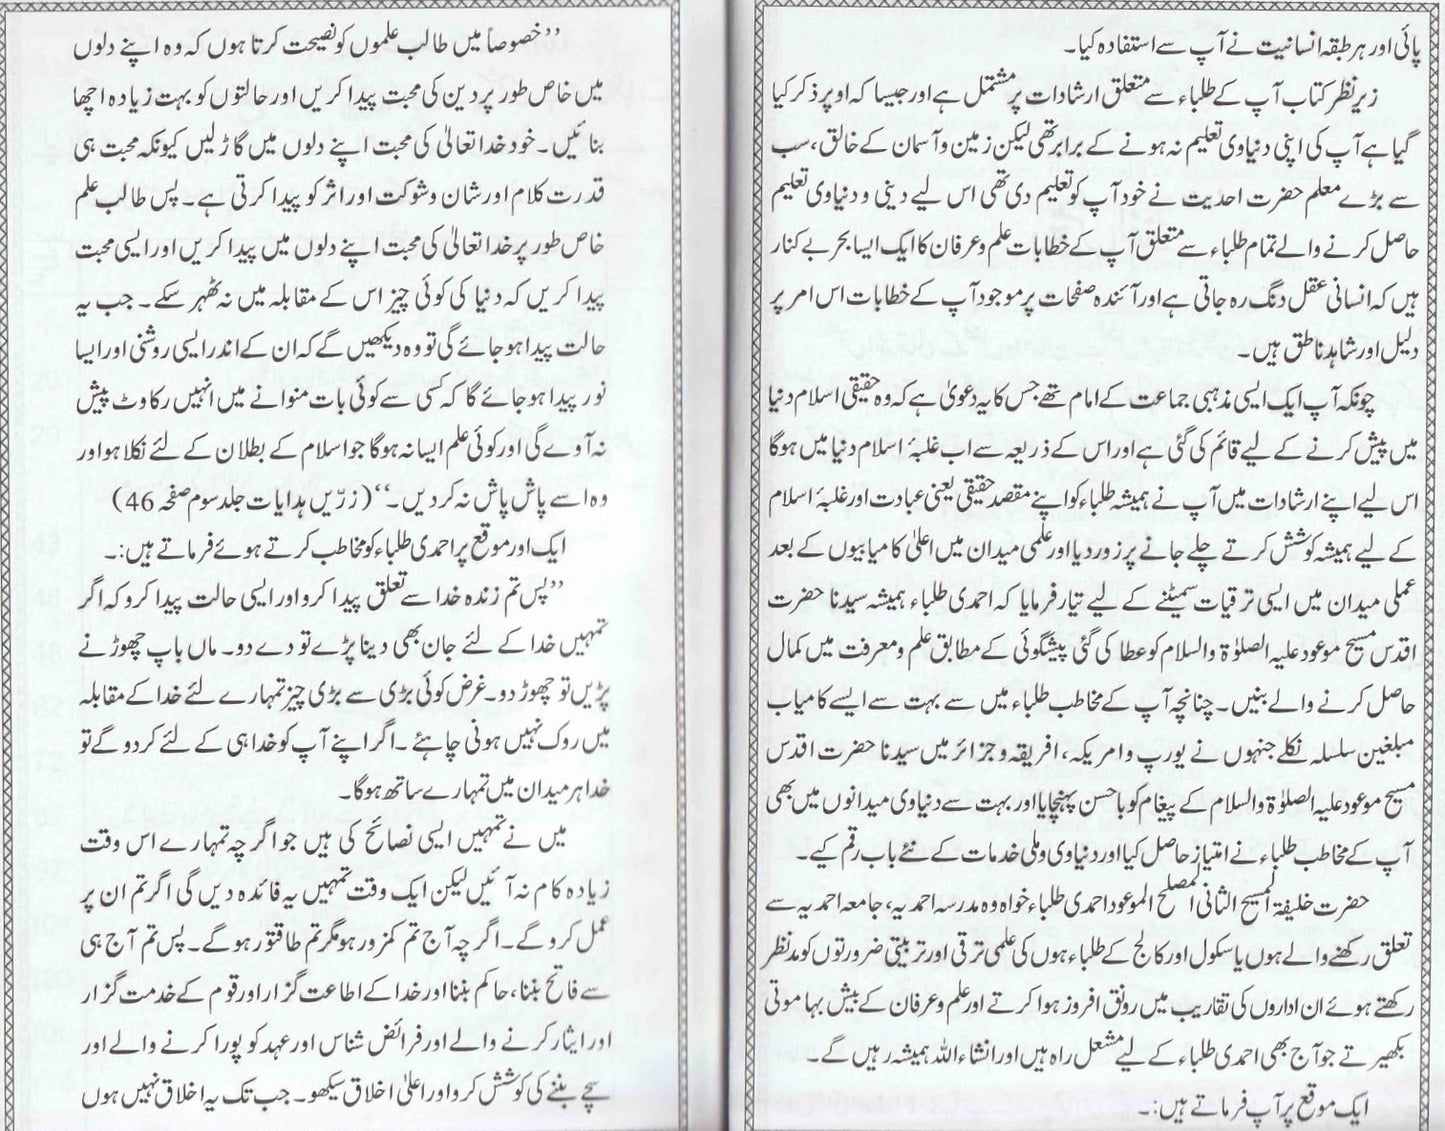 پائی اور ہر طبقہ انسانیت نے آپ سے استفادہ کیا۔
زیر نظر کتاب آپ کے طلباء سے متعلق ارشادات پر مشتمل ہے اور جیسا کہ اوپر ذکر کیا
گیا ہے آپ کی اپنی دنیاوی تعلیم نہ ہونے کے برابر تھی لیکن زمین و آسمان کے خالق، سب
سے بڑے معلم حضرت احدیت نے خود آپ کو تعلیم دی تھی اس لیے دینی و دنیاوی تعلیم
حاصل کرنے والے تمام طلباء سے متعلق آپ کے خطابات علم و عرفان کا ایک ایسا بحر بے کنار
ہیں کہ انسانی عقل دنگ رہ جاتی ہے اور آئندہ صفحات پر موجود آپ کے خطابات اس امر پر
دلیل اور شاہد ناطق ہیں۔
چونکہ آپ ایک ایسی مذہبی جماعت کے امام تھے جس کا یہ دعویٰ ہے کہ وہ حقیقی اسلام دنیا
میں پیش کرنے کے لیے قائم کی گئی ہے اور اس کے ذریعہ سے اب غلبۂ اسلام دنیا میں ہوگا
اس لیے اپنے ارشادات میں آپ نے ہمیشہ طلباء کو اپنے مقصد حقیقی یعنی عبادت اور غلبۂ اسلام
کے لیے ہمیشہ کوشش کرتے چلے جانے پر زور دیا اور علمی میدان میں اعلیٰ کامیابیوں کے بعد
عملی میدان میں ایسی ترقیات سمیٹنے کے لیے تیار فرمایا کہ احمدی طلباء ہمیشہ سیدنا حضرت
اقدس مسیح موعود علیہ الصلوٰۃ والسلام کو عطا کی گئی پیشگوئی کے مطابق علم و معرفت میں کمال
حاصل کرنے والے بنیں۔ چنانچہ آپ کے مخاطب طلباء میں سے بہت سے ایسے کامیاب
مبلغین سلسلہ نکلے جنہوں نے یورپ و امریکہ، افریقہ و جزائر میں سیدنا حضرت اقدس
مسیح موعود علیہ الصلوٰۃ والسلام کے پیغام کو باحسن پہنچایا اور بہت سے دنیاوی میدانوں میں بھی
آپ کے مخاطب طلباء نے امتیاز حاصل کیا اور دنیاوی و ملی خدمات کے نئے باب رقم کیے۔
حضرت خلیفۃ المسیح الثانی المصلح الموعود احمدی طلباء خواہ وہ مدرسہ احمدیہ، جامعہ احمدیہ سے
تعلق رکھنے والے ہوں یا سکول اور کالج کے طلباء ہوں کی علمی ترقی اور تربیتی ضرورتوں کو مدنظر
رکھتے ہوئے ان اداروں کی تقاریب میں رونق افروز ہوا کرتے اور علم و عرفان کے بیش بہا موتی
بکھیرتے جو آج بھی احمدی طلباء کے لیے مشعل راہ ہیں اور انشاء اللہ ہمیشہ رہیں گے۔
ایک موقع پر آپ فرماتے ہیں:۔
’’خصوصاً میں طالب علموں کو نصیحت کرتا ہوں کہ وہ اپنے دلوں
میں خاص طور پر دین کی محبت پیدا کریں اور حالتوں کو بہت زیادہ اچھا
بنائیں۔ خود خدا تعالیٰ کی محبت اپنے دلوں میں گاڑ لیں کیونکہ محبت ہی
قدرت کلام اور شان و شوکت اور اثر کو پیدا کرتی ہے۔ پس طالب علم
خاص طور پر خدا تعالیٰ کی محبت اپنے دلوں میں پیدا کریں اور ایسی محبت
پیدا کریں کہ دنیا کی کوئی چیز اس کے مقابلہ میں نہ ٹھہر سکے۔ جب یہ
حالت پیدا ہو جائے گی تو وہ دیکھیں گے کہ ان کے اندر ایسی روشنی اور ایسا
نور پیدا ہو جائے گا کہ کسی سے کوئی بات منوانے میں انہیں رکاوٹ پیش
نہ آوے گی اور کوئی علم ایسا نہ ہوگا جو اسلام کے بطلان کے لئے نکلا ہو اور
وہ اسے پاش پاش نہ کر دیں۔‘‘ (زرّیں ہدایات جلد سوم صفحہ 46)
ایک اور موقع پر احمدی طلباء کو مخاطب کرتے ہوئے فرماتے ہیں:۔
’’پس تم زندہ خدا سے تعلق پیدا کرو اور ایسی حالت پیدا کرو کہ اگر
تمہیں خدا کے لئے جان بھی دینا پڑے تو دے دو۔ ماں باپ چھوڑنے
پڑیں تو چھوڑ دو۔ غرض کوئی بڑی سے بڑی چیز تمہارے لئے خدا کے مقابلہ
میں روک نہیں ہونی چاہئے۔ اگر اپنے آپ کو خدا ہی کے لئے کر دو گے تو
خدا ہر میدان میں تمہارے ساتھ ہوگا۔
میں نے تمہیں ایسی نصائح کی ہیں جو اگر چہ تمہارے اس وقت
زیادہ کام نہ آئیں لیکن ایک وقت تمہیں یہ فائدہ دیں گی اگر تم ان پر
عمل کرو گے۔ اگر چہ آج تم کمزور ہو مگر تم طاقتور ہو گے۔ پس تم آج ہی
سے فاتح بننا، حاکم بننا اور خدا کے اطاعت گزار اور قوم کے خدمت گزار
اور ایثار کرنے والے اور فرائض شناس اور عہد کو پورا کرنے والے اور
سچے بننے کی کوشش کرو اور اعلیٰ اخلاق سیکھو۔ جب تک یہ اخلاق نہیں ہوں